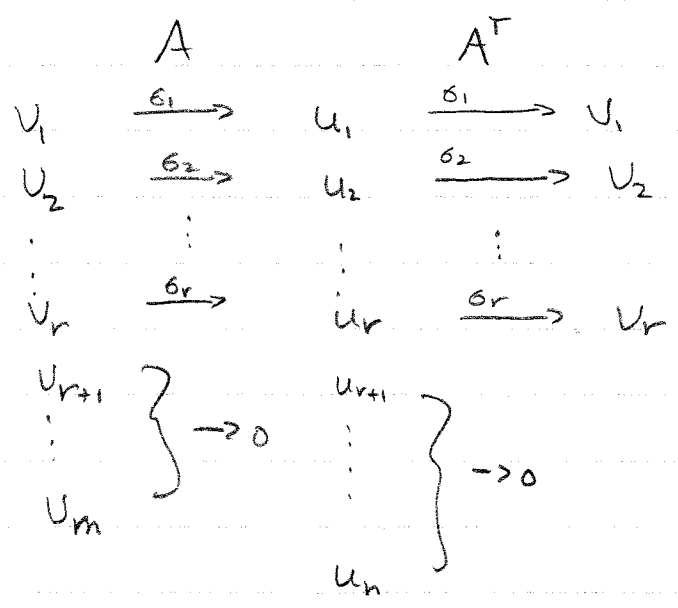 A Aᵀ
v₁ →σ₁ u₁ →σ₁ v₁
v₂ →σ₂ u₂ →σ₂ v₂
⋮ ⋮ ⋮ ⋮
vᵣ →σᵣ uᵣ →σᵣ vᵣ
vᵣ₊₁ uᵣ₊₁
⋮ } → 0 ⋮ } → 0
vₘ
uₙ